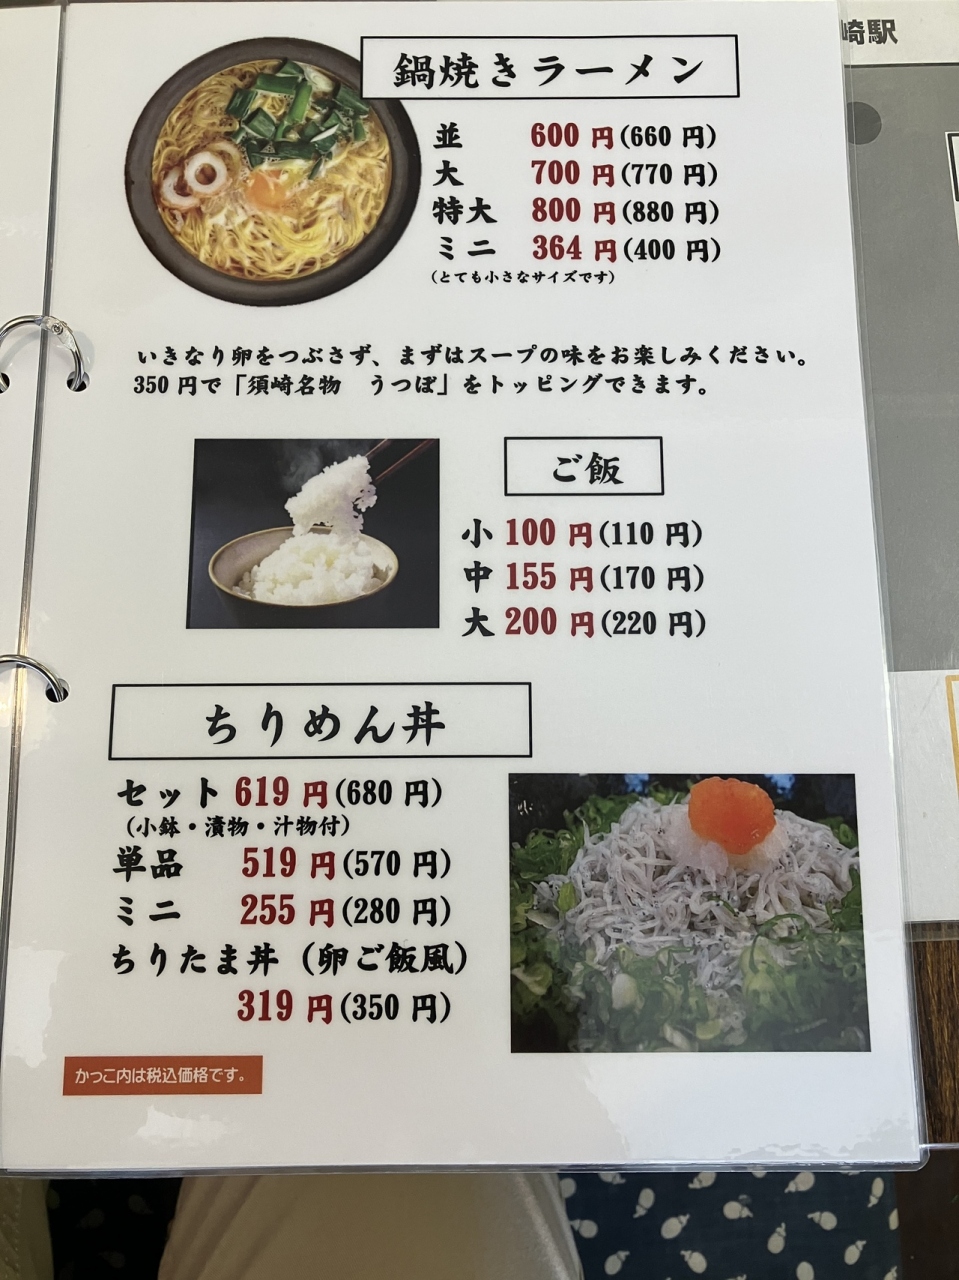 崎駅
鍋焼きラーメン
並 600円(660円)
大 700円(770円)
特大 800円(880円)
ミニ 364円(400円)
(とても小さなサイズです)
いきなり卵をつぶさず、まずはスープの味をお楽しみください。
350円で「須崎名物　うつぼ」をトッピングできます。
ご飯
小 100円(110円)
中 155円(170円)
大 200円(220円)
ちりめん丼
セット 619円(680円)
(小鉢・漬物・汁物付)
単品 519円(570円)
ミニ 255円(280円)
ちりたま丼(卵ご飯風)
319円(350円)
かっこ内は税込価格です。